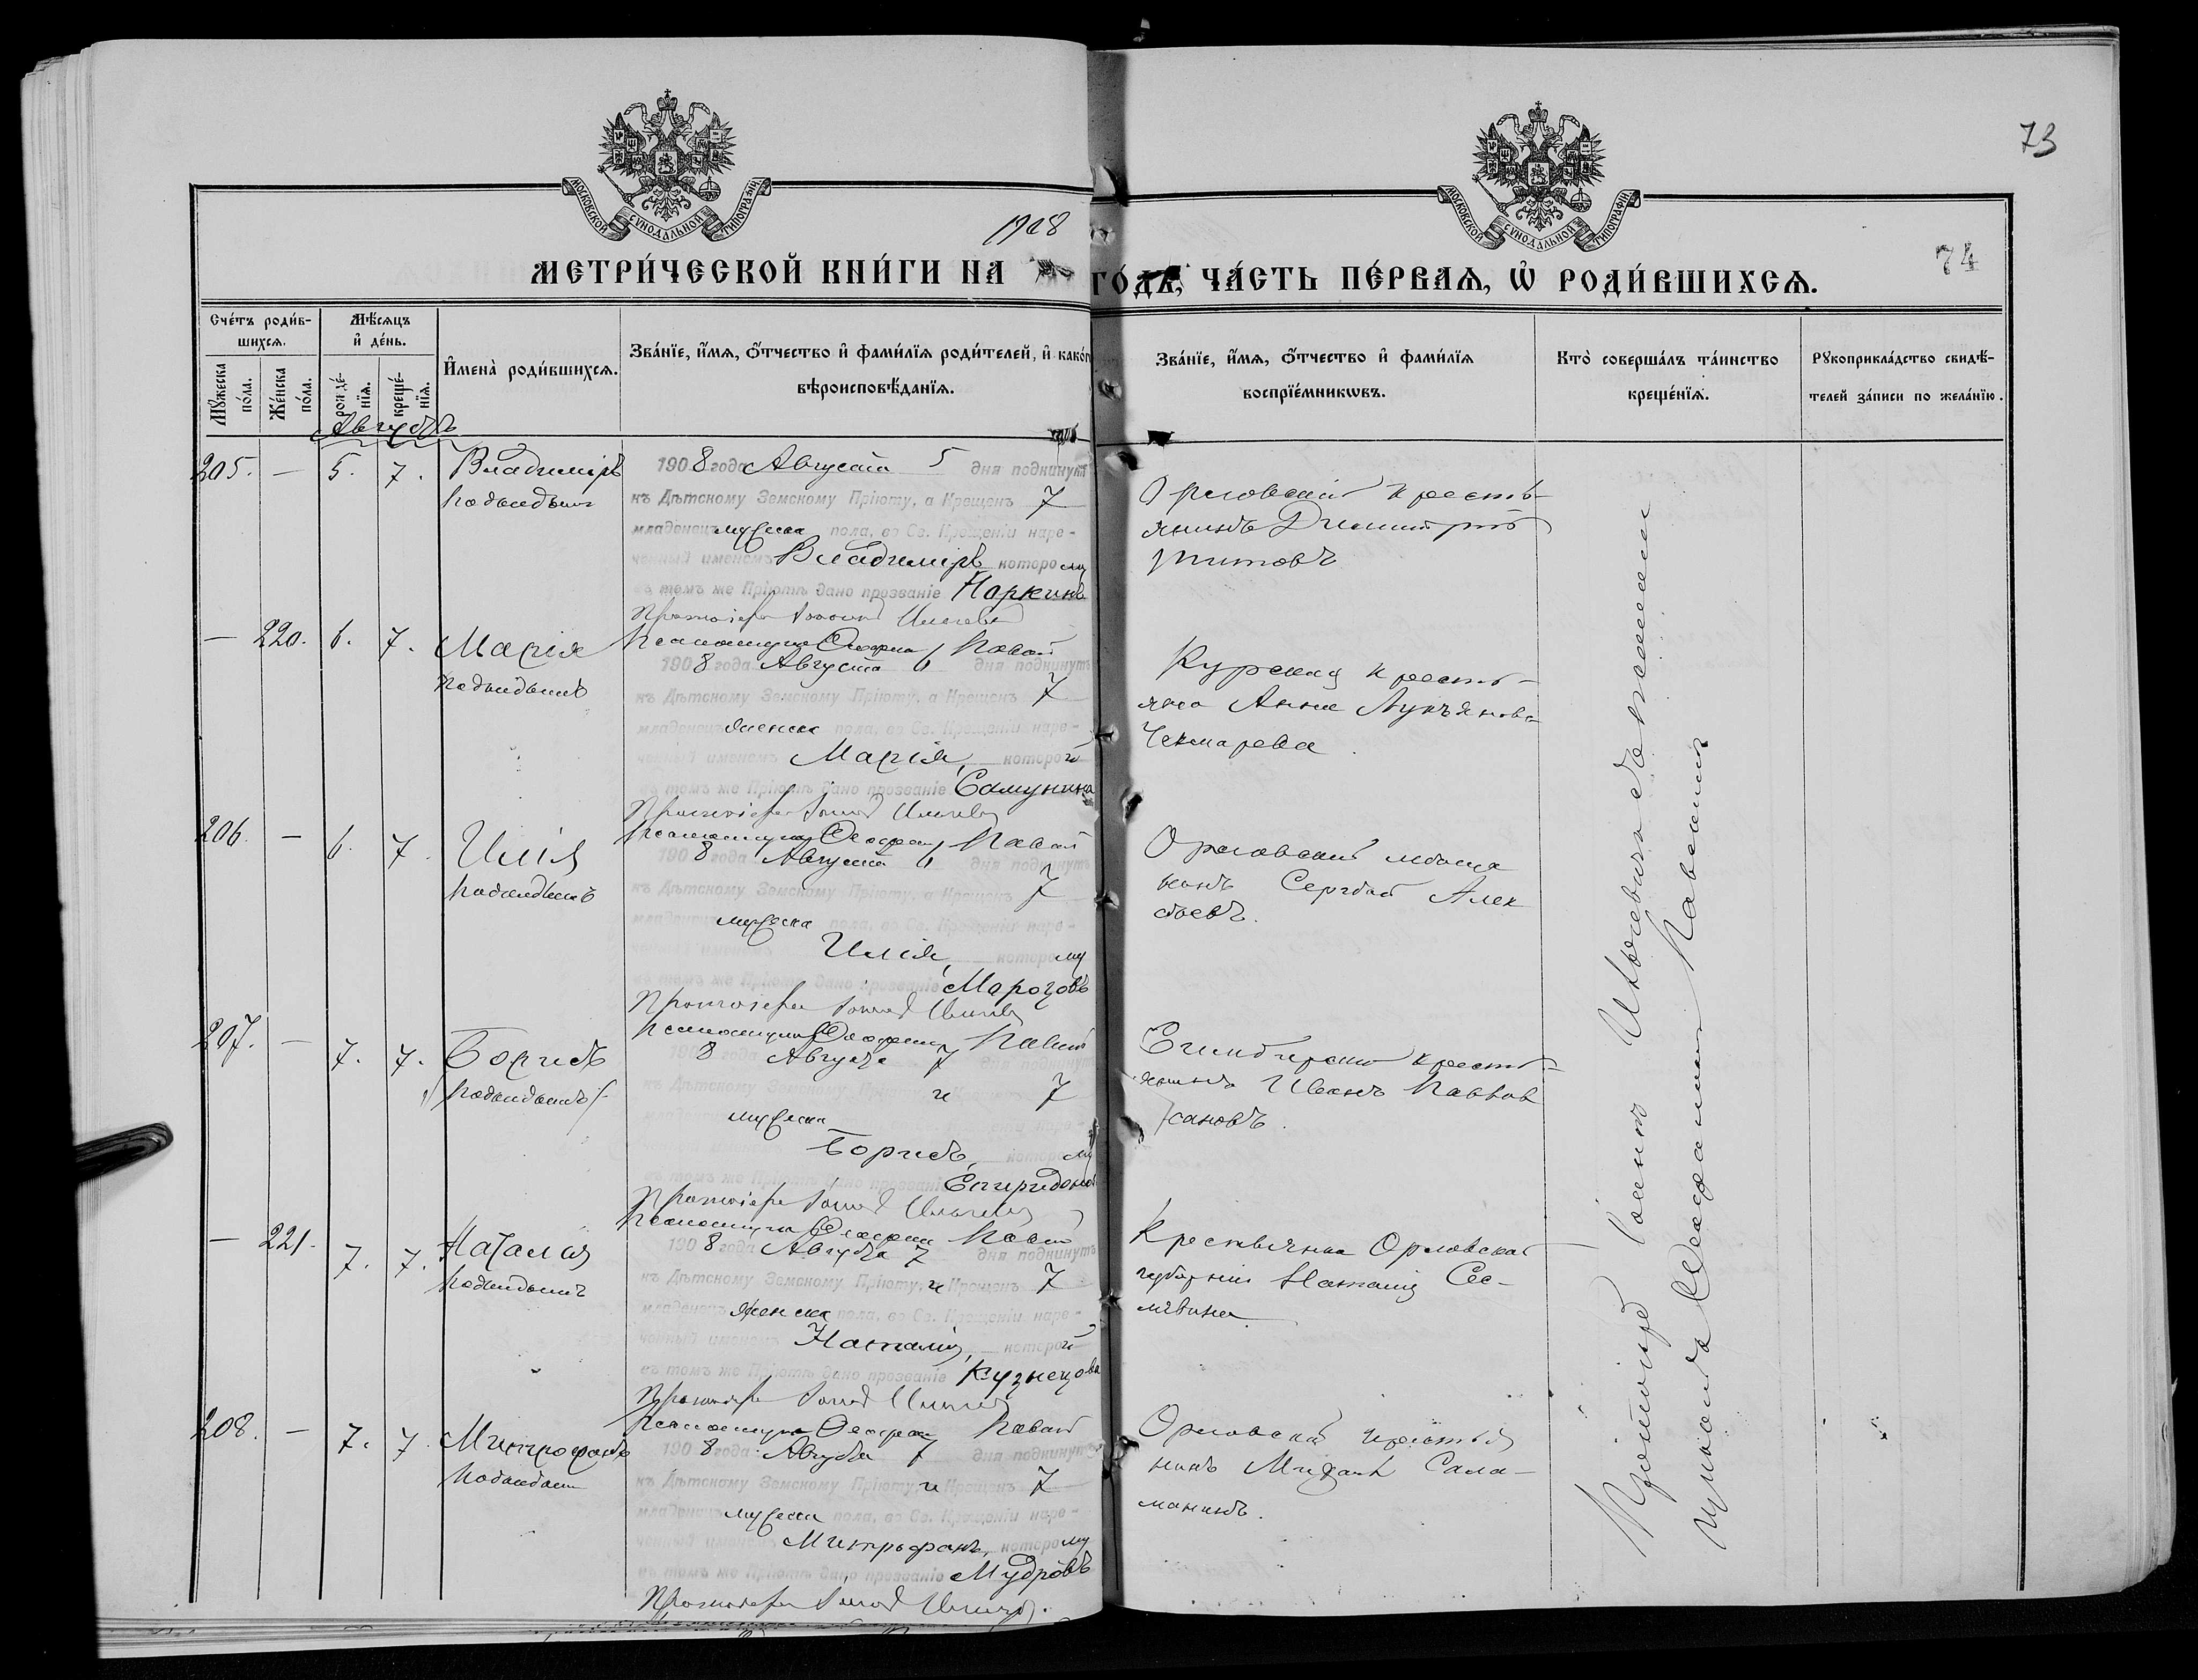 73
МОСКОВСКОЙ СУНОДАЛЬНОЙ ТИПОГРАФІИ.
МОСКОВСКОЙ СУНОДАЛЬНОЙ ТИПОГРАФІИ.
1908
74
МЕТРИ́ЧЕСКОЙ КНИ́ГИ НА ГО́ДЪ, ЧА́СТЬ ПЕ́РВАѦ, Ѡ҆ РОДИ́ВШИХСѦ.
Сче́тъ роди́в-
шихсѧ.
Мѣ́сѧцъ
и҆ де́нь.
Мꙋ́жеска по́ла.
Же́нска по́ла.
рожде́-нїѧ.
креще́-нїѧ.
И҆мена̀ роди́вшихсѧ.
Зва́нїе, и҆́мѧ, ѻ҆́тчество и҆ фами́лїѧ роди́телей, и҆ како́гѡ
вѣроисповѣ́данїѧ.
Зва́нїе, и҆́мѧ, ѻ҆́тчество и҆ фами́лїѧ
воспрїе́мникѡвъ.
Кто̀ соверша́лъ та́инство
креще́нїѧ.
Рꙋкоприкла́дство свидѣ́-
телей за́писи по жела́нїю.
Августъ
205. — 5. 7. Владиміръ
подкидышъ
1908 года Августа 5 дня подкинутъ
къ Дѣтскому Земскому Пріюту, а Крещенъ 7
младенецъ мужеска пола, во Св. Крещеніи наре-
ченный именемъ Владиміръ которому
въ томъ же Пріютѣ дано прозваніе
Протоіерей Іоаннъ Ильевъ
Орловскій кресть-
янинъ Димитрій
Титовъ
— 220. 6. 7. Марія
подкидышъ
Псаломщикъ Ѳеофанъ
1908 года Августа 6 дня подкинутъ
къ Дѣтскому Земскому Пріюту, а Крещенъ 7
младенецъ женска пола, во Св. Крещеніи наре-
ченный именемъ Марія, которой
въ томъ же Пріютѣ дано прозваніе Самунина
Протоіерей Іоаннъ Ильевъ
Курская кресть-
янка Анна Лукъянова
Чекмарева
206. — 6. 7. Илія
подкидышъ
Псаломщикъ Ѳеофанъ
1908 года Августа 6 дня подкинутъ
къ Дѣтскому Земскому Пріюту, а Крещенъ 7
младенецъ мужеска пола, во Св. Крещеніи наре-
ченный именемъ Илія, которому
въ томъ же Пріютѣ дано прозваніе Морозовъ
Протоіерей Іоаннъ Ильевъ
Орловскій мѣща
нинъ Сергѣй Алек
сѣевъ.
207. — 7. 7. Борисъ
подкидышъ
Псаломщикъ Ѳеофанъ
1908 года Августа 7 дня подкинутъ
къ Дѣтскому Земскому Пріюту и 7
мужеска
Борисъ, которому
въ томъ же Пріютѣ дано прозваніе Спиридоновъ
Протоіерей Іоаннъ Ильевъ
Симбирскій кресть-
янинъ Иванъ
— 221. 7. 7. Наталія
подкидышъ
Псаломщикъ Ѳеофанъ
1908 года Августа 7 дня подкинутъ
къ Дѣтскому Земскому Пріюту, и Крещенъ 7
младенецъ женска пола, во Св. Крещеніи наре-
ченный именемъ Наталія, которой
въ томъ же Пріютѣ дано прозваніе Кузнецова
Протоіерей Іоаннъ Ильевъ
Крестьянка Орловской
губерніи Наталія
208. — 7. 7. Митрофанъ
подкидышъ
Псаломщикъ Ѳеофанъ
1908 года Августа 7 дня подкинутъ
къ Дѣтскому Земскому Пріюту, и Крещенъ 7
младенецъ мужеска пола, во Св. Крещеніи наре-
ченный именемъ Митрофанъ, которому
въ томъ же Пріютѣ дано прозваніе Мудровъ
Протоіерей Іоаннъ Ильевъ.
Орловскій крестья
нинъ Михаилъ Сала-
манинъ.
Протоіерей Іоаннъ Ильевъ съ псалом
щикомъ Ѳеофаномъ